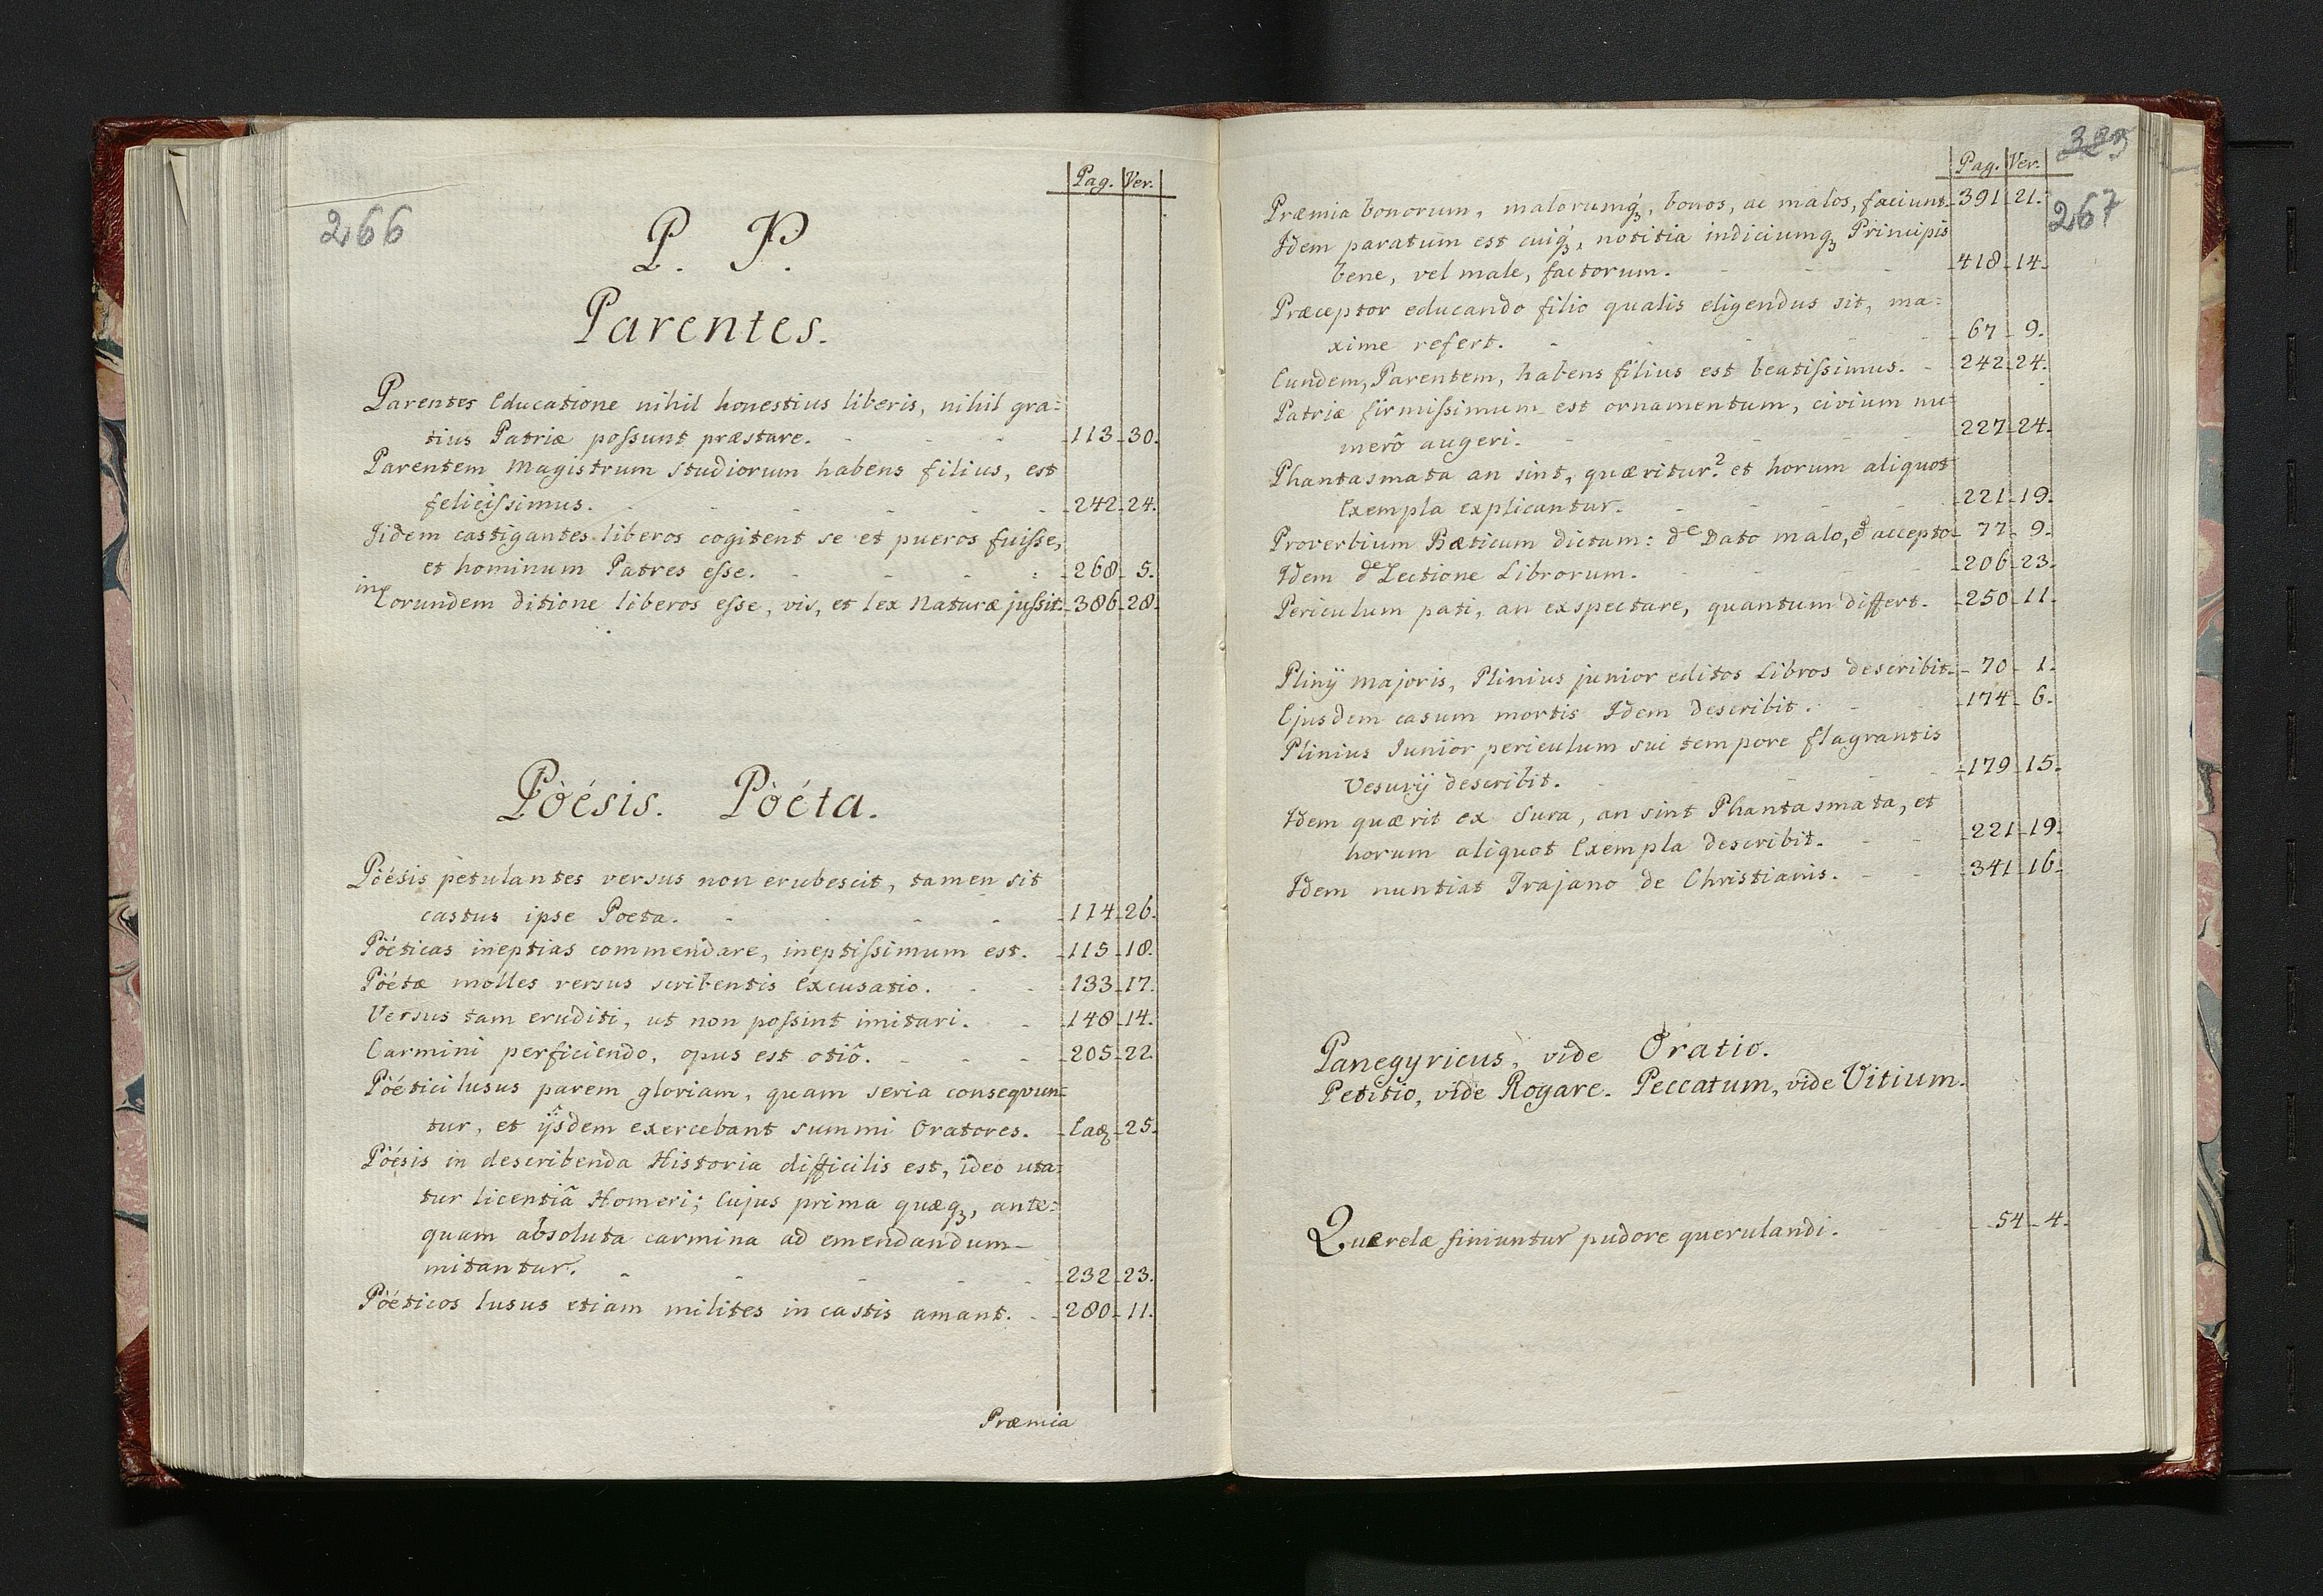 266
Pag. Ver.
P. P.
Parentes.
Parentes Educatione nihil honestius liberis, nihil gra=
tius Patriæ possunt præstare. - - - 113. 30.
Parentem Magistrum studiorum habens filius, est
felicissimus. - - - - - 242. 24.
Iidem castigantes liberos cogitent se et pueros fuisse,
et hominum Patres esse. - - - 268. 5.
in Eorundem ditione liberos esse, vis, et lex Naturæ jussit. 386. 28.
Pòésis. Pòéta.
Pòésis petulantes versus non erubescit, tamen sit
castus ipse Poeta. - - - - 114. 26.
Pòéticas ineptias commendare, ineptissimum est. 115. 18.
Pòétæ molles versus scribentis Excusatio. - - 133. 17.
Versus tam eruditi, ut non possint imitari. - 148. 14.
Carmini perficiendo, opus est otiô. - - - 205. 22.
Pòéticilusus parem gloriam, quam seria conseqvun=
tur, et ijsdem exercebant summi Oratores. Eaq 25.
Pòésis in describenda Historia difficilis est, ideo uta=
tur licentiâ Homeri; Cujus prima quæq3, ante=
quam absoluta carmina ad emendandum
mitantur. - - - - 232. 23.
Pòéticos lusus etiam milites in castis amant. - 280. 11.
Præmia
Pag. Ver.
267
Præmia bonorum, malorumq3, bonos, ac malos, faciunt. 391. 21.
Idem paratum est cuiq3, notitia indiciumq3 Principis
bene, vel male, factorum. - - - 418. 14.
Præceptor educando filio qualis eligendus sit, ma=
xime refert. - - - - - 67. 9.
Eundem, Parentem, habens filius est beatissimus. - 242. 24.
Patriæ firmissimum est ornamentum, civium nu=
merô augeri. - - - - 227. 24.
Phantasmata an sint, quæritur? et horum aliquot
Exempla explicantur. - - - 221. 19.
Proverbium Bæticum dictam: de Dato malo, & accepto 77. 9.
Idem de Lectione Librorum. - - - 206. 23.
Periculum pati, an exspectare, quantum differt. - 250. 11.
Plinij Majoris, Plinius junior editos Libros describit. 70. 1.
Ejusdem casum mortis Idem describit. - - 174. 6.
Plinius Junior, periculum sui tempore flagrantis
Vesuvij describit. - - - - 179. 15.
Idem quærit ex Sura, an sint Phantasmata, et
horum aliquot Exempla describit. - - 221. 19.
Idem nuntiat Trajano de Christianis. - - 341. 16.
Panegyricus, vide Oratio.
Petitio, vide Rogare. Peccatum, vide Vitium.
Querelæ finiuntur pudore querulandi. - - 54. 4.